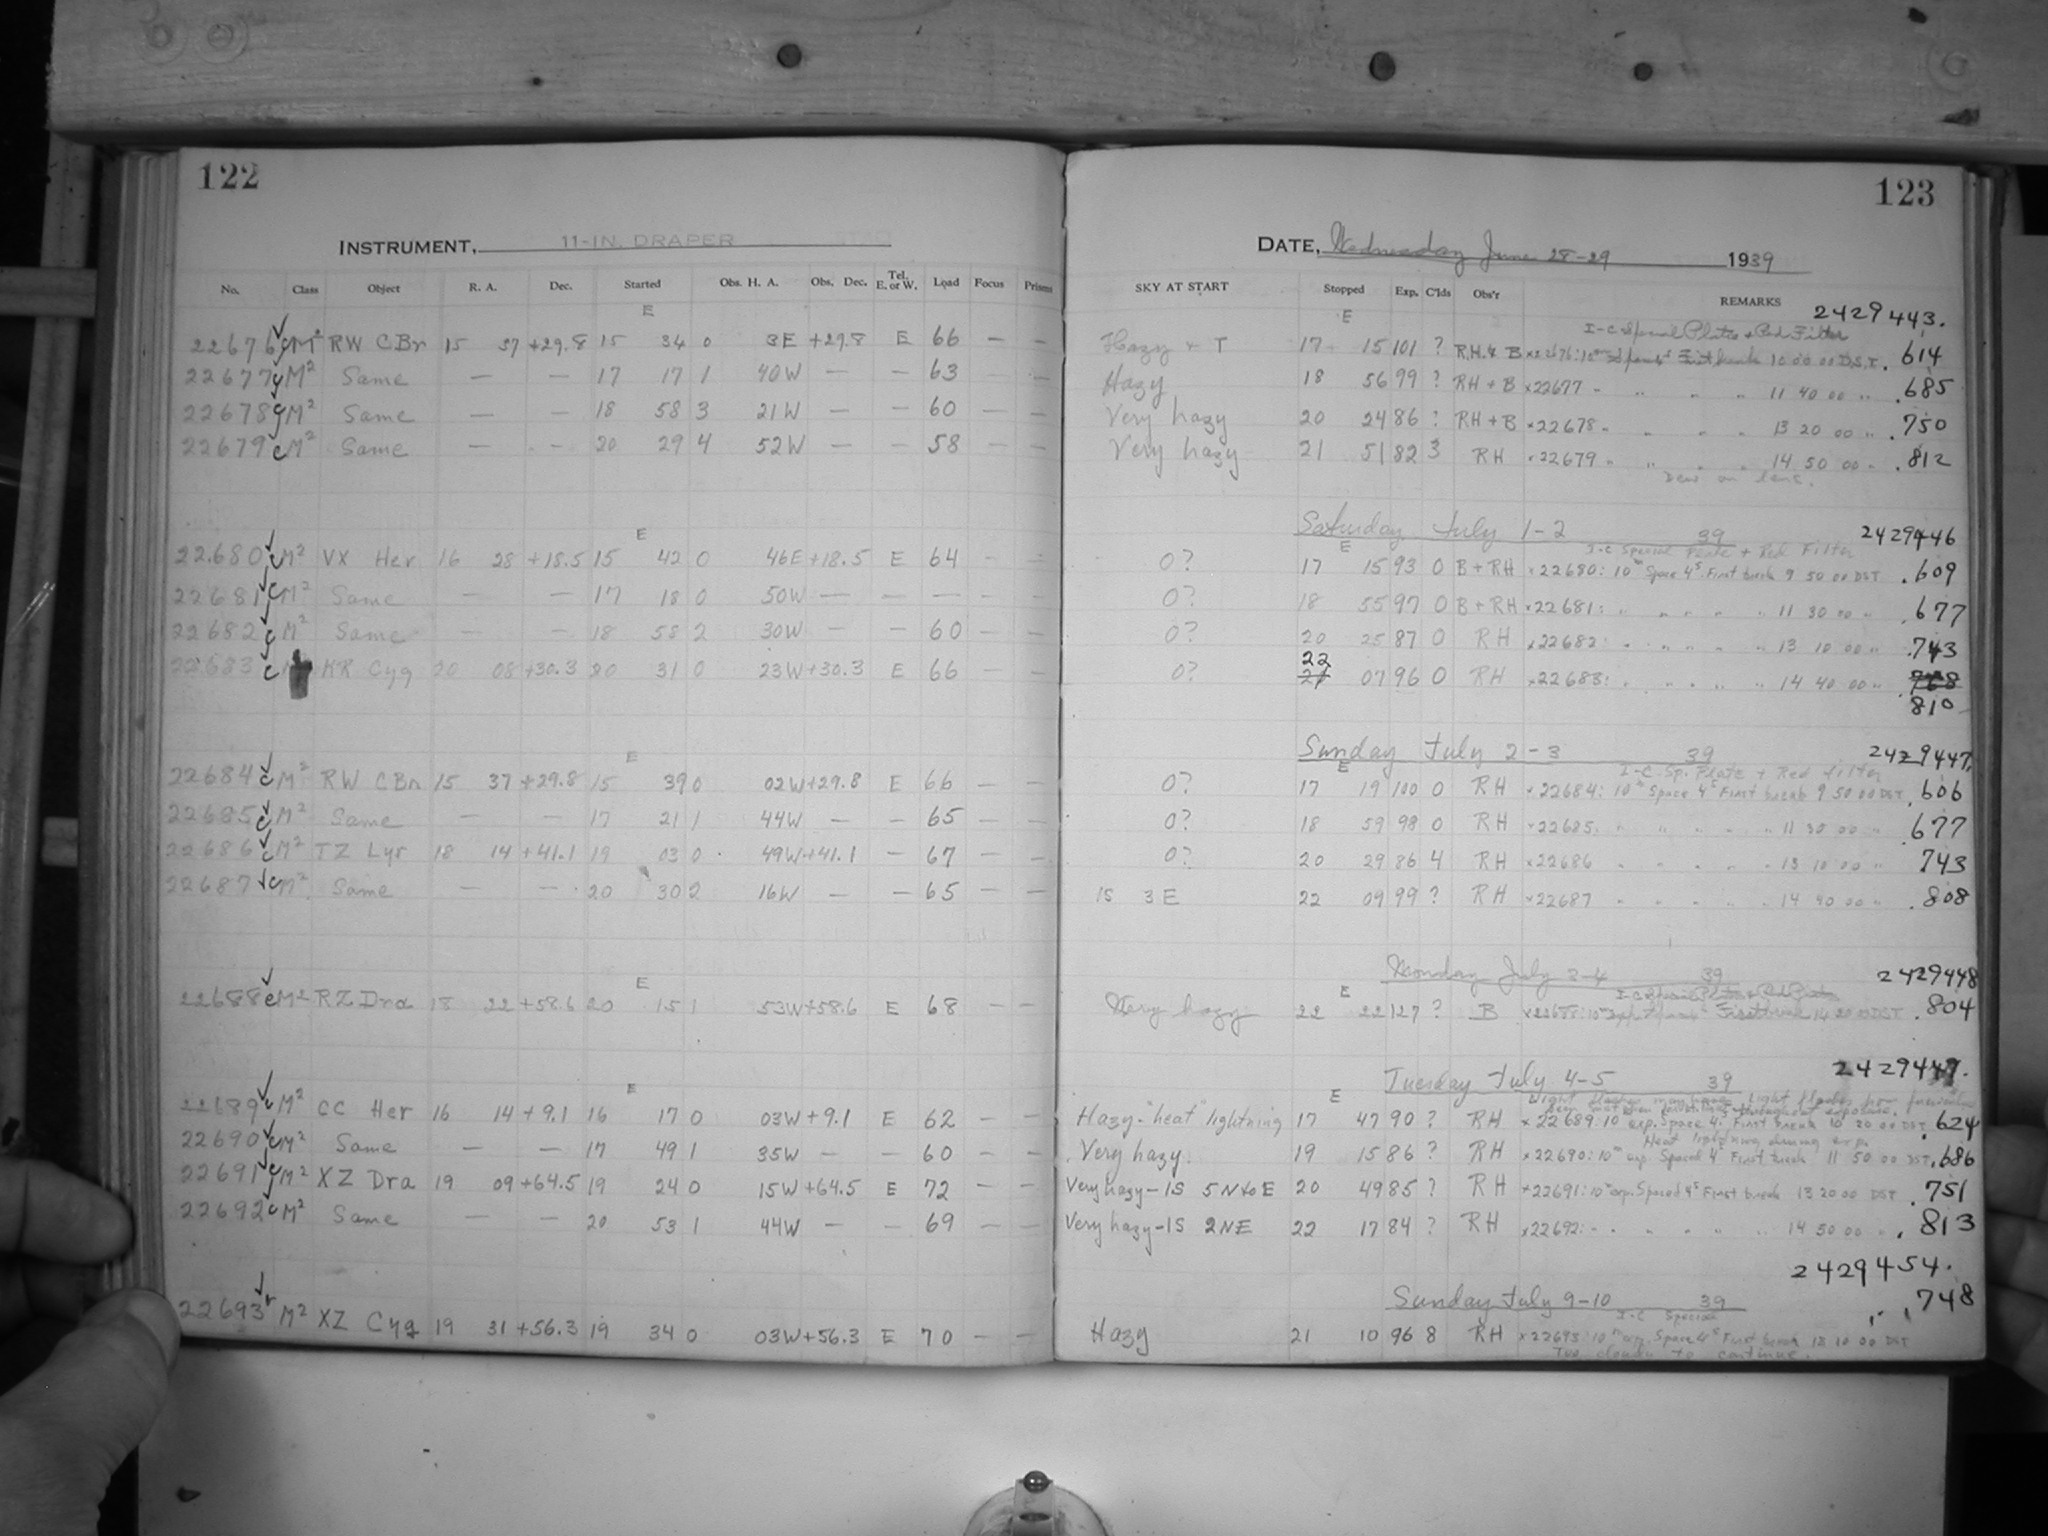 122
INSTRUMENT, 11-IN. DRAPER
No. Class Object R. A. Dec. Started Obs. H. A. Obs. Dec. Tel. E. or W. Load Focus Prisms
E
22676 c M² RW CBr 15 37 +29.8 15 34 0 3E +29.8 E 66 — —
22677 c M² Same — — 17 17 1 40W — — 63 — —
22678 c M² Same — — 18 58 3 21W — — 60 — —
22679 c M² Same — — 20 29 4 52W — — 58 — —
E
22680 c M² VX Her 16 28 +18.5 15 42 0 46E +18.5 E 64 — —
22681 c M² Same — — 17 18 0 50W — — — — —
22682 c M² Same — — 18 58 2 30W — — 60 — —
22683 c M KR Cyg 20 08 +30.3 20 31 0 23W +30.3 E 66 — —
E
22684 c M² RW CBr 15 37 +29.8 15 39 0 02W +29.8 E 66 — —
22685 c M² Same — — 17 21 1 44W — — 65 — —
22686 c M² TZ Lyr 18 14 +41.1 19 03 0 49W +41.1 — 67 — —
22687 c M² Same — — 20 30 2 16W — — 65 — —
E
22688 c M² RZ Dra 18 22 +58.6 20 15 1 53W +58.6 E 68 — —
E
22689 c M² CC Her 16 14 +9.1 16 17 0 03W +9.1 E 62 — —
22690 c M² Same — — 17 49 1 35W — — 60 — —
22691 c M² XZ Dra 19 09 +64.5 19 24 0 15W +64.5 E 72 — —
22692 c M² Same — — 20 53 1 44W — — 69 — —
22693 M² XZ Cyg 19 31 +56.3 19 34 0 03W +56.3 E 70 — —
123
DATE, Wednesday June 28-29 1939
SKY AT START Stopped Exp. C'lds Obs'r REMARKS
2429443.
E I-C Special Plate + Red Filter
Hazy + T 17 15 101 ? R.H. & B x22676: 10ᵐ Space 4ˢ First break 10 00 00 D.S.T. .614
Hazy 18 56 99 ? RH + B x22677 " " " " 11 40 00 " .685
Very hazy 20 24 86 ? RH + B x22678 " " " " 13 20 00 " .750
Very hazy 21 51 82 3 RH x22679 " " " " 14 50 00 " .812
Dew on lens.
Saturday July 1-2 39 2429446
E I-C Special Plate + Red Filter
0? 17 15 93 0 B + RH x22680: 10ᵐ Space 4ˢ. First break 9 50 00 DST .609
0? 18 55 97 0 B + RH x22681: " " " " " 11 30 00 " .677
0? 20 25 87 0 RH x22682: " " " " " 13 10 00 " .743
22
0? 21 07 96 0 RH x22683: " " " " " 14 40 00 " .768
810
Sunday July 2-3 39 2429447.
E I-C Sp. Plate + Red filter
0? 17 19 100 0 RH x22684: 10ᵐ Space 4ˢ First break 9 50 00 DST .606
0? 18 59 98 0 RH x22685. " " " " " 11 30 00 " .677
0? 20 29 86 4 RH x22686 " " " " 13 10 00 " 743
IS 3E 22 09 99 ? RH x22687 " " " " 14 40 00 " .808
Monday July 3-4 39 2429448
E I-C Special Plate + Red Filter
Very hazy 22 22 127 ? B x22688: 10ᵐ First break 14 20 00 DST .804
2429449.
Tuesday July 4-5 39
E Light flashes from fireworks
throughout exposure.
Hazy-"heat" lightning 17 47 90 ? RH x22689: 10 exp. Space 4ˢ. First break 10 20 00 DST .624
Heat lightning during exp.
Very hazy. 19 15 86 ? RH x22690: 10ᵐ exp. Spaced 4ˢ First break 11 50 00 DST .686
Very hazy-IS 5N to E 20 49 85 ? RH x22691: 10ᵐ exp. Spaced 4ˢ First break 13 20 00 DST .751
Very hazy-IS 2NE 22 17 84 ? RH x22692: " " " " " 14 50 00 " .813
2429454.
Sunday July 9-10 39 .748
I-C Special
Hazy 21 10 96 8 RH x22693: 10ᵐ exp. Space 4ˢ First break 13 10 00 DST
Too cloudy to continue.